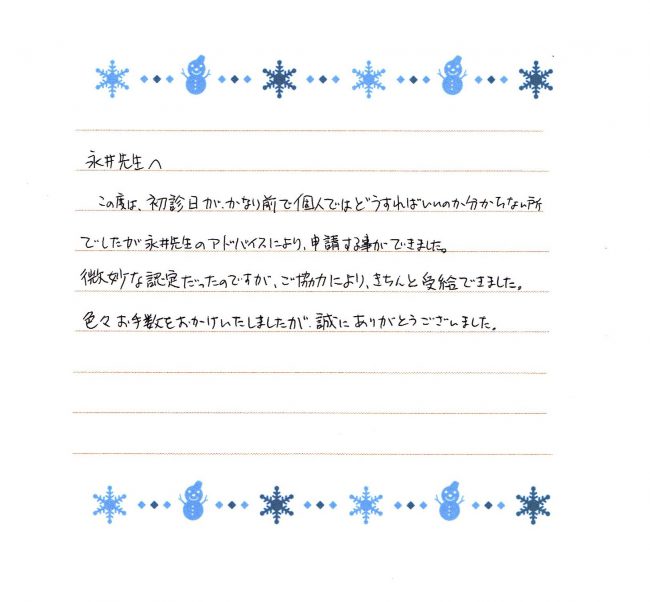 永井先生へ
この度は、初診日が、かなり前で個人ではどうすればいいのか分からない所
でしたが永井先生のアドバイスにより、申請する事ができました。
微妙な認定だったのですが、ご協力により、きちんと受給できました。
色々お手数をおかけいたしましたが、誠にありがとうございました。